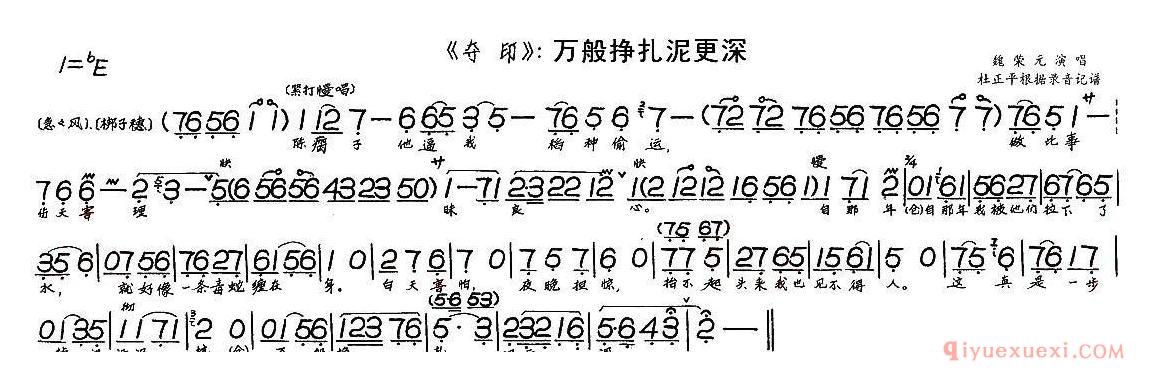 《夺印》：万般挣扎泥更深
1=bE
魏荣元演唱
杜正平根据录音记谱
(紧打慢唱)
(急急风).(梆子穗)(7656 i i) 1 12 7 — 6 65 3 5 — 76 5 6 7 — (72 72 7656 7656 7 7) 765 1 —
陈瘸子他逼我稻种偷运， 做此事
快 廿 快 慢 2/4
7 6 6 — 2 3 — 5(6 5656 4323 50) 1 — 71 23 22 12 1(2 1212 1656 1) 1 71 2 | 01 61 | 56 27 | 67 65 |
伤天害理 昧良心。 自那年(仓)自那年我被他们拉下了
(75 67)
35 6 | 07 56 | 76 27 | 61 56 | 1 0 | 2 7 6 | 7 0 | 5 7 6 | 5 0 | 77 5 | 27 65 | 15 61 | 5 0 | 75 6 | 76 17 |
水， 就好像一条毒蛇缠在身。 白天害怕， 夜晚担惊， 抬不起头来我也见不得人。 这真是一步
(56 53)
01 35 | 11 71 | 2 0 | 01 56 | 123 76 | 5· 3 | 232 16 | 5·6 43 | 2 — ‖
Qiyuexuexi.COM